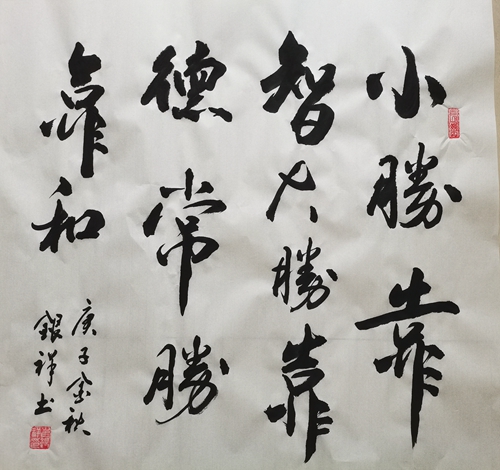 小勝靠
智大勝靠
德常勝
靠和
庚子金秋
銀祥书